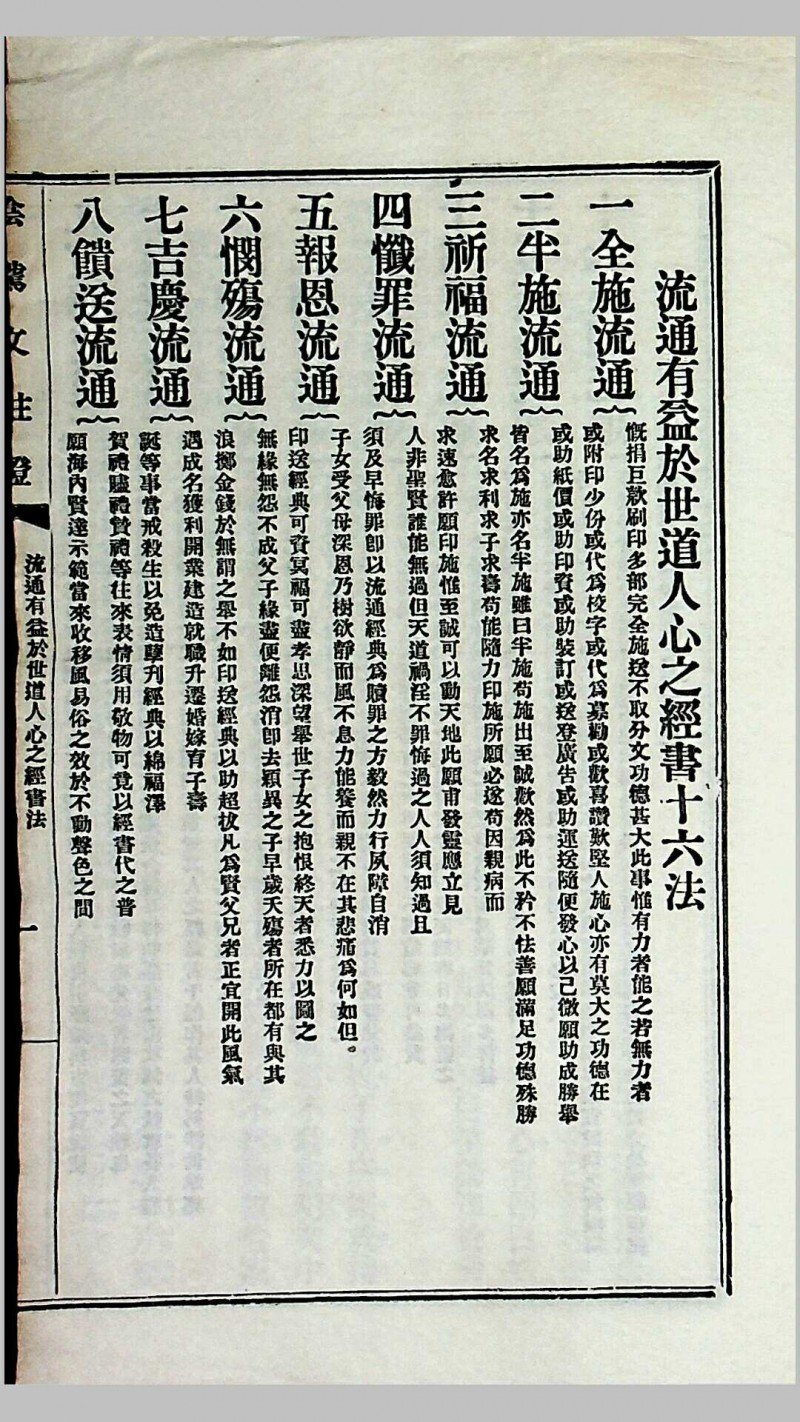 流通有益於世道人心之經書十六法
一全施流通
慨捐巨款刷印多部完全施送不取分文功德甚大此事惟有力者能之若無力者
或附印少份或代爲校字或代爲募勸或歡喜讚歎堅人施心亦有莫大之功德在
二半施流通
或助紙價或助印資或助裝訂或送登廣告或助運送隨便發心以己微願助成勝舉
皆名爲施亦名半施雖曰半施苟施出至誠歡然爲此不矜不怯善願滿足功德殊勝
三祈福流通
求名求利求子求壽苟能隨力印施所願必遂苟因親病而
求速愈許願印施惟至誠可以動天地此願甫發靈應立見
四懺罪流通
人非聖賢誰能無過但天道禍淫不罪悔過之人人須知過且
須及早悔罪卽以流通經典爲贖罪之方毅然力行夙障自消
五報恩流通
子女受父母深恩乃樹欲靜而風不息力能養而親不在其悲痛爲何如但。
印送經典可資冥福可盡孝思深望舉世子女之抱恨終天者悉力以圖之
六憫殤流通
無緣無怨不成父子緣盡便離怨消卽去穎異之子早歲夭殤者所在都有與其
浪擲金錢於無謂之舉不如印送經典以助超拔凡爲賢父兄者正宜開此風氣
七吉慶流通
遇成名獲利開業建造就職升遷婚嫁育子壽
誕等事當戒殺生以免造孽刋經典以綿福澤
八饋送流通
賀禮贐禮贄禮等往來表情須用敬物可竟以經書代之普
願海內賢達示範當來收移風易俗之效於不動聲色之間
陰騭文註證
流通有益於世道人心之經書法
一